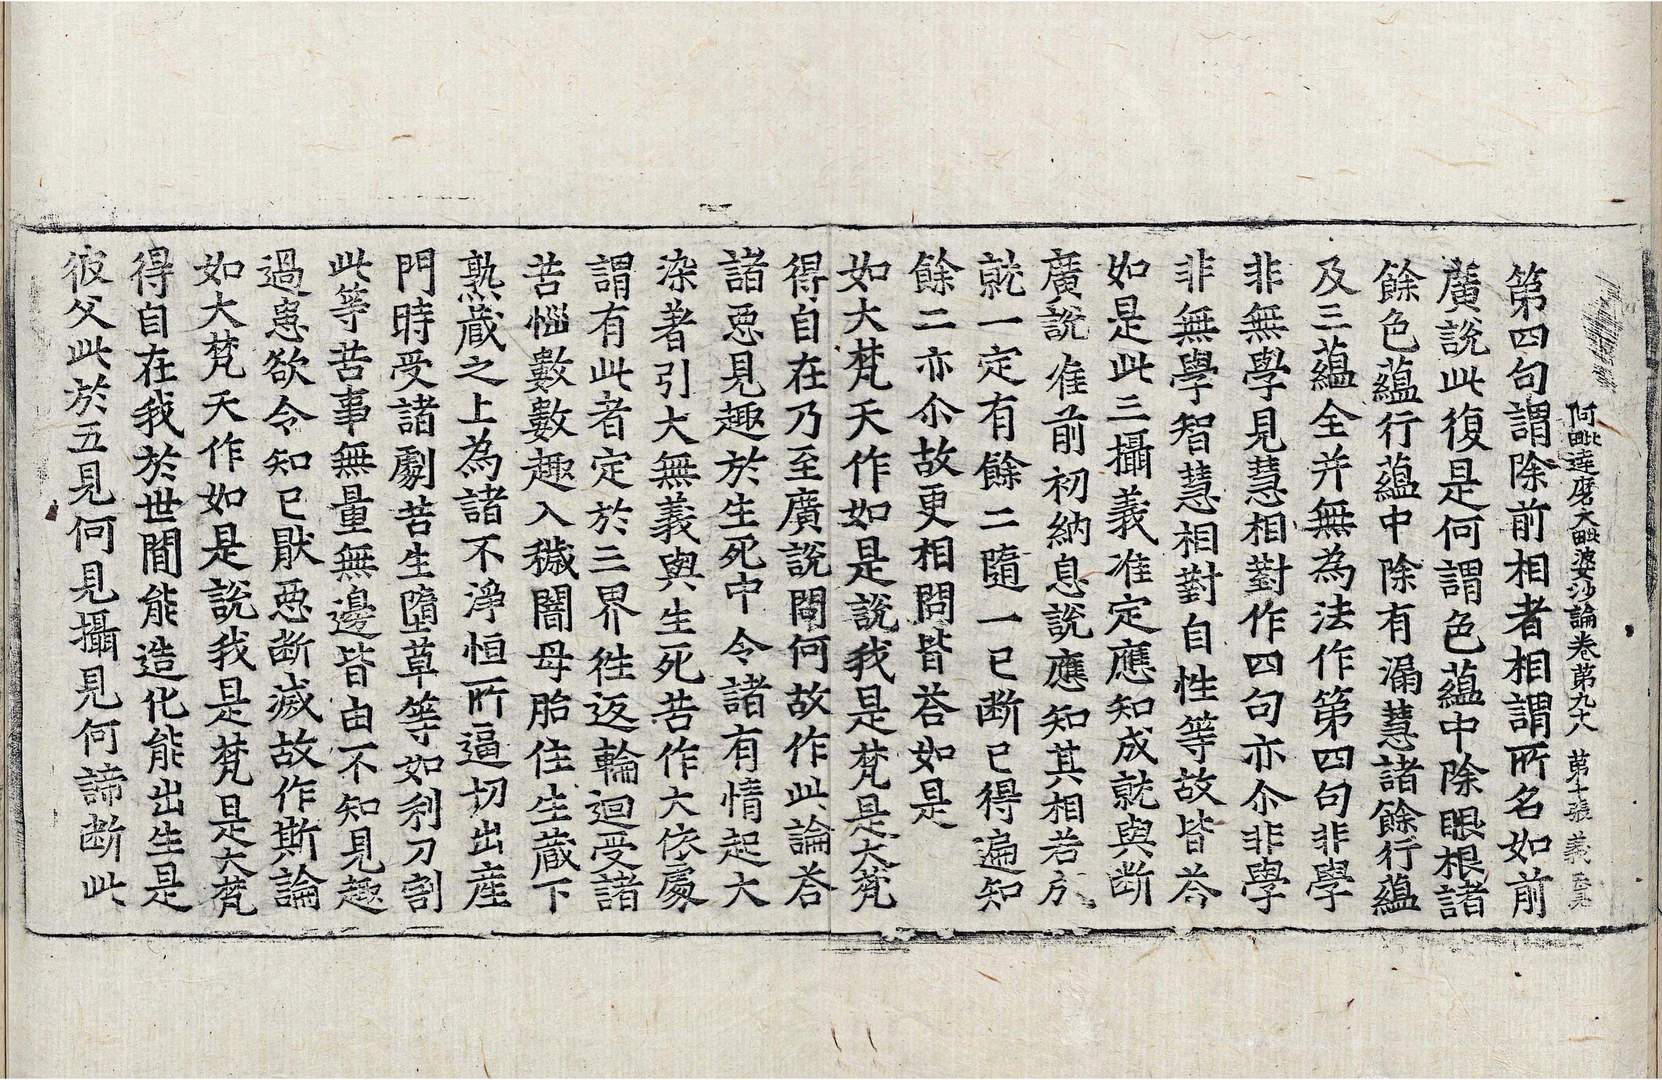 阿毗達磨大毗婆沙論卷苐九十八 苐十張 義
第四句謂除前相者相謂所名如前
廣說此復是何謂色蘊中除眼根諸
餘色蘊行蘊中除有漏慧諸餘行蘊
及三蘊全并無為法作第四句非學
非無學見慧相對作四句亦尒非學
非無學智慧相對自性等故皆荅
如是此三攝義准定應知成就與断
廣說准前初納息說應知其相若於
就一定有餘二隨一已断已得遍知
餘二亦尒故更相問皆荅如是
如大梵天作如是說我是梵是大梵
得自在乃至廣說問何故作此論荅
諸惡見趣於生死中令諸有情起大
染著引大無義與生死苦作大依處
謂有此者定於三界徃返輪迴受諸
苦惱數數趣入穢闇母胎住生蔵下
熟蔵之上為諸不淨恒所逼切出産
門時受諸劇苦生墮草等如利刀割
此等苦事無量無邊皆由不知見趣
過患欲令知已猒惡断滅故作斯論
如大梵天作如是說我是梵是大梵
得自在我於世間能造化能出生是
彼父此於五見何見攝見何諦断此